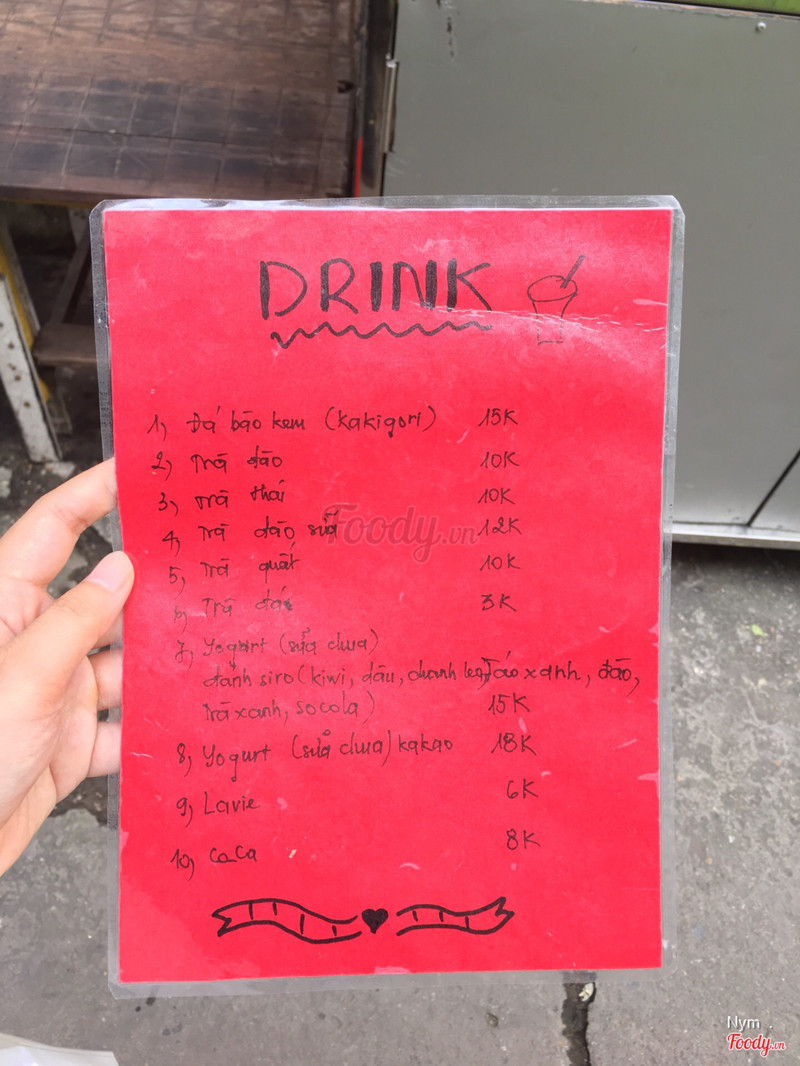 DRINK
1, Đá bào kem (kakigori) 15K
2, Trà đào 10K
3, Trà thái 10K
4, Trà đào sữa 12K
5, Trà quất 10K
6, Trà đá 3K
7, Yogurt (sữa chua)
đánh siro (kiwi, dâu, chanh leo, Táo xanh, đào,
trà xanh, socola) 15K
8, Yogurt (sữa chua) kakao 18K
9, Lavie 6K
10, CaCa 8K
Foody.vn
Nym
Foody.vn